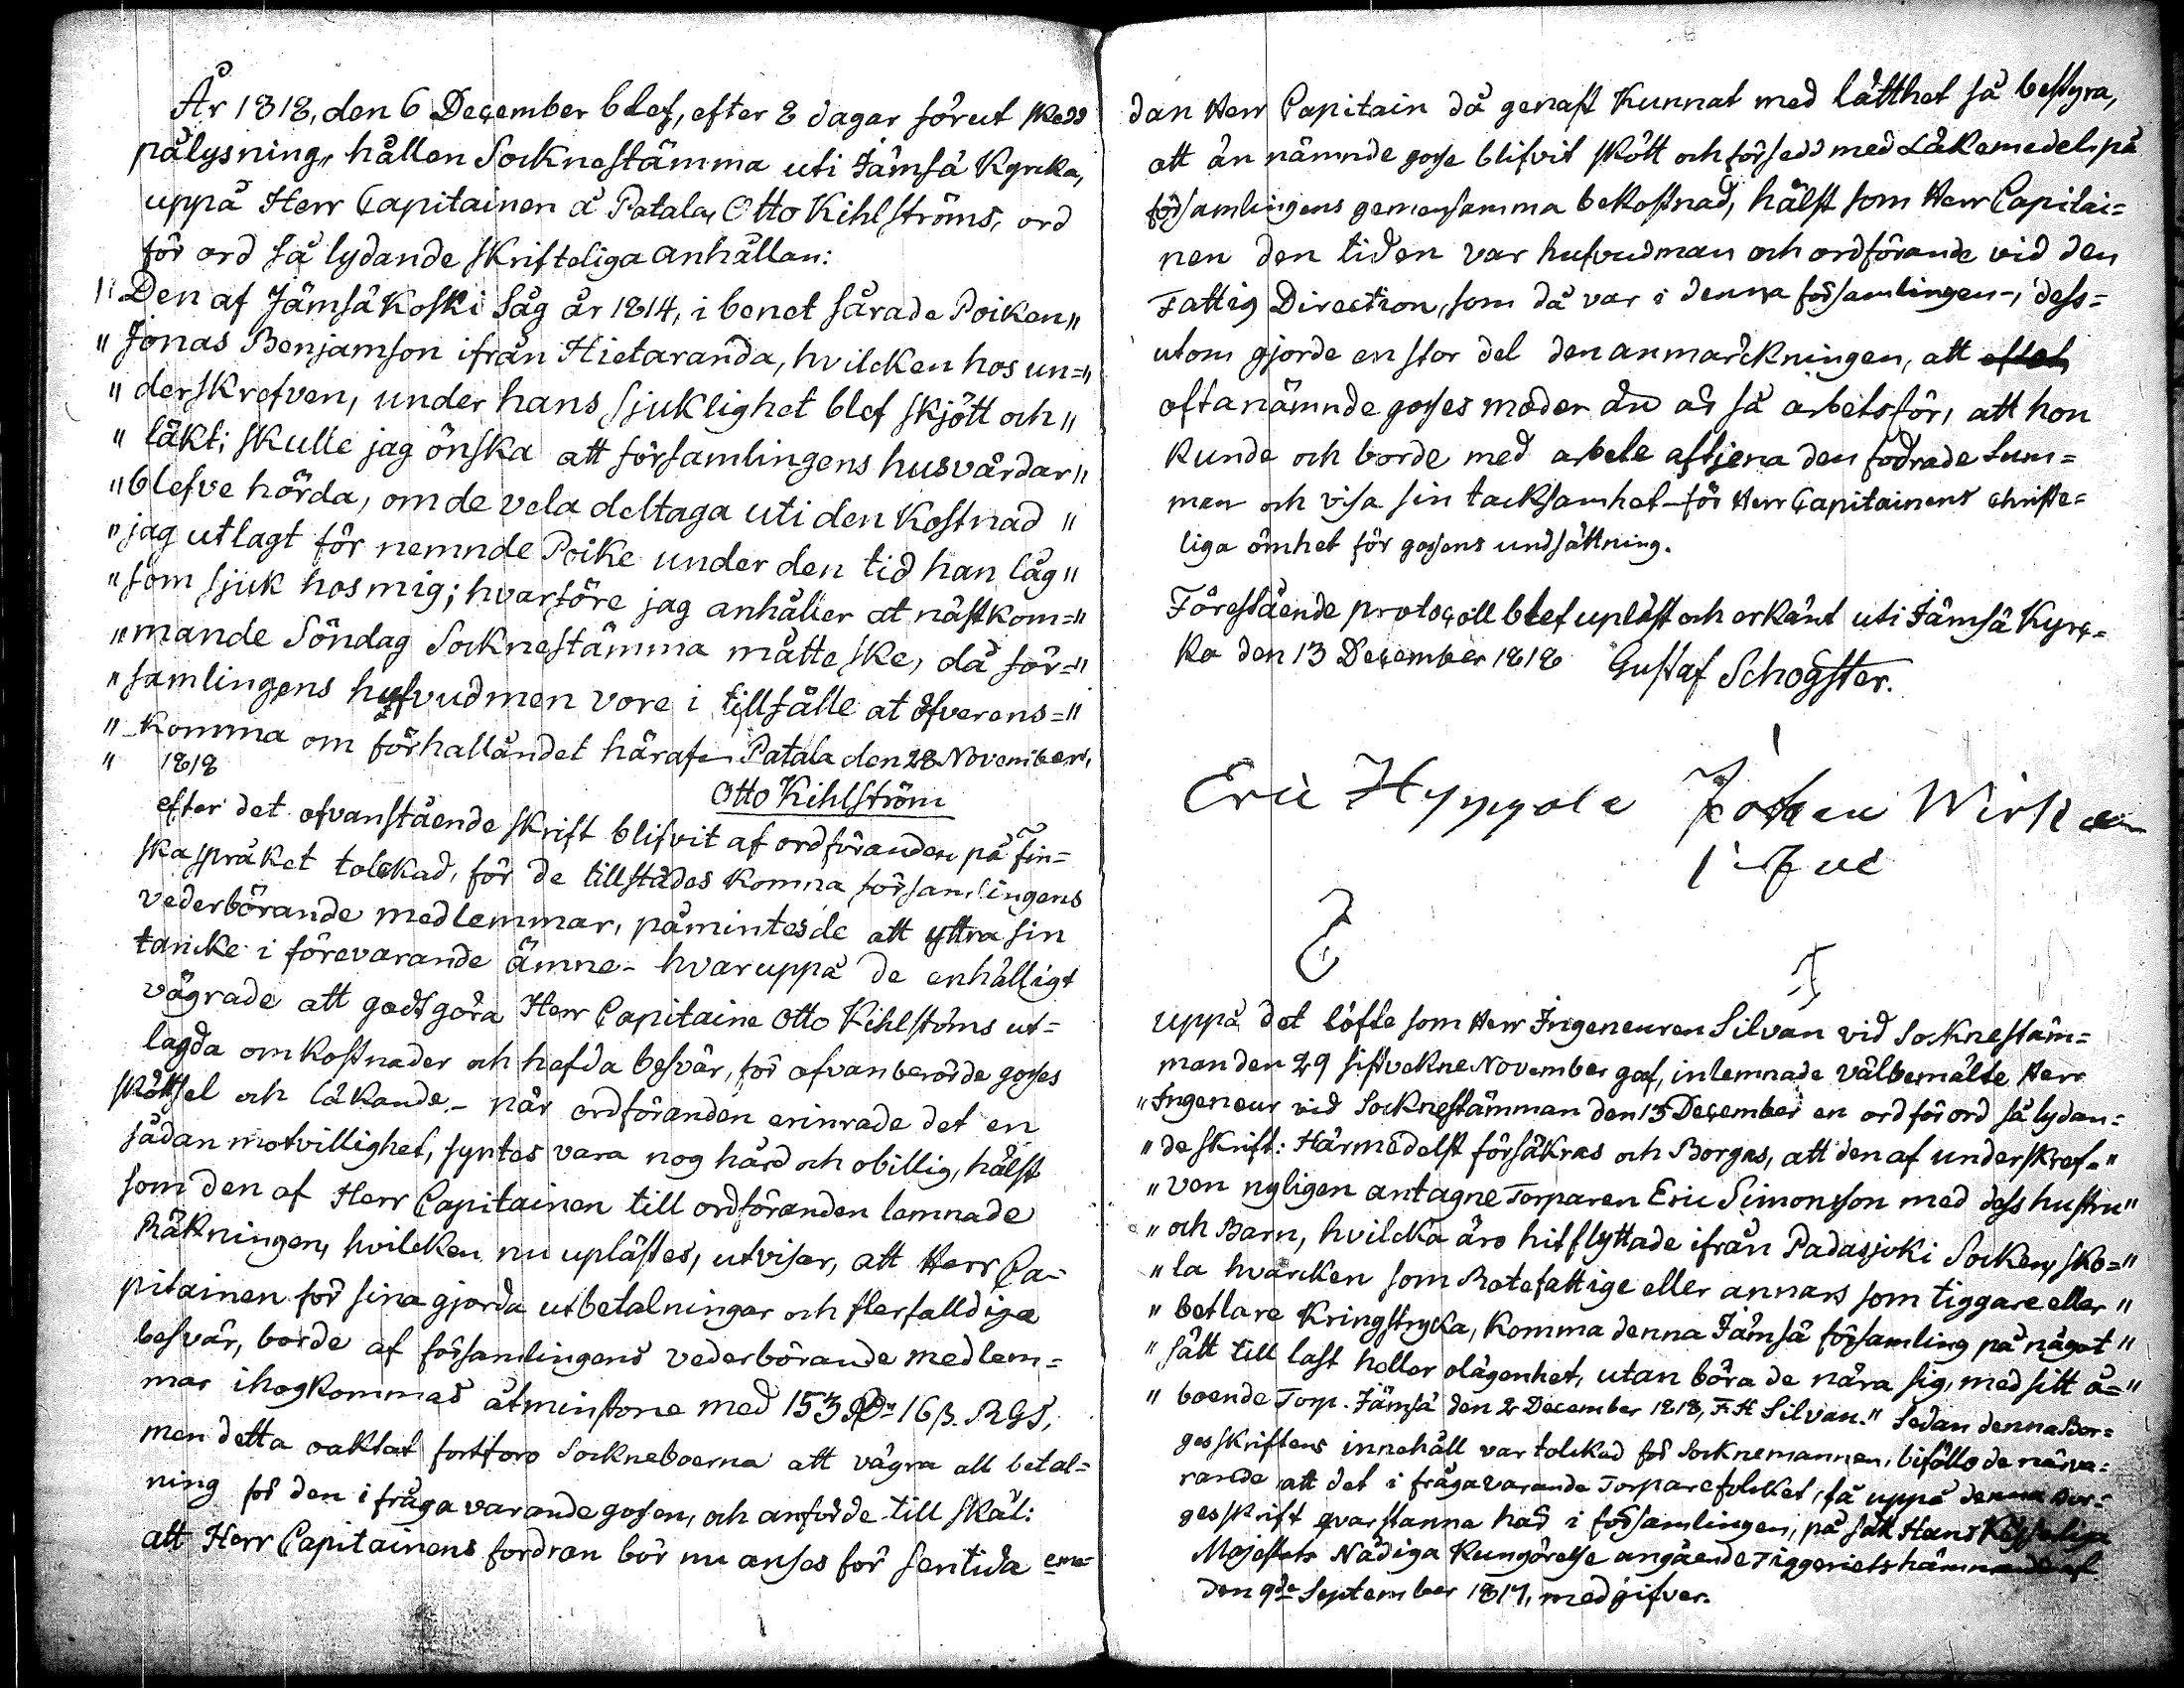 År 1818, den 6 December blef, efter 8 dagar förut skedd
pålysning, hållen Socknestämma uti Jämsä Kyrcka,
uppå Herr Capitainen å Patala, Otto Kihlströms, ord
för ord så lydande skrifteliga anhållan:
" Den af Jämsäkoski Såg år 1814, i benet sårade Poiken "
" Jonas Benjamson ifrån Hietaranda, hvilcken hos un= "
" derskrefven, under hans sjuklighet blef skjött och "
" läkt; skulle jag önska att församlingens husvärdar "
" blefve hörda, om de vela deltaga uti den Kostnad "
" jag utlagt för nemnde Poike under den tid han låg "
" som sjuk hos mig; hvarföre jag anhåller at nästkom= "
" mande Söndag Socknestämma måtte ske, då för= "
" samlingens hufvudmen vore i tillfälle at öfverens= "
" komma om förhallandet häraf. Patala den 28 November,
" 1818
Otto Kihlström
efter det ofvanstående skrift blifvit af ordföranden på Fin=
ska språket tolckad, för de tillstädes komna församlingens
vederbörande medlemmar, påmintes de att yttra sin
tancke i förevarande ämne - hvaruppå de enhälligt
vägrade att godtgöra Herr Capitaine Otto Kihlströms ut=
lagda omkostnader och hafda besvär, för ofvanberörde goses
skötsel och läkande. - när ordföranden erinrade det en
sådan motvillighet, syntes vara nog hård och obillig, hälst
som den af Herr Capitainen till ordföranden lemnade
Räkningen, hvilcken nu uplästes, utviser, att Herr Ca=
pitainen för sina gjorda utbetalningar och flerfalldiga
besvär, borde af församlingens vederbörande medlem=
mar ihogkommas åtminstone med 153 Rd 16 ß. RGS,
men detta oaktat fortforo Sockneboerna att vägra all betal=
ning för den ifrågavarande gosen, och anförde till skäl:
att Herr Capitainens fordran bör nu anses för sentida eme=
dan Herr Capitain då genast kunnat med lätthet så bestyra,
att än nämnde gose blifvit skött och försedd med Läkemedel på
församlingens gemensamma bekostnad, hälst som Herr Capitai=
nen den tiden var hufvudman och ordförande vid den
Fattig Direction, som då var i denna församlingen, dess=
utom gjorde en stor del den anmärckningen, att
oftanämnde goses moder än är så arbetsför, att hon
kunde och borde med arbete aftjena den fodrade Sum=
man och visa sin tacksamhet för Herr Capitainens christe=
liga ömhet för gosens undsättning.
Förestående protocoll blef upläst och erkänt uti Jämsä Kyrc=
ka den 13 December 1818 Gustaf Schogster.
Eric Hyppole Johan
uppå det löfte som Herr Ingeneuren Silvan vid Socknestäm=
man den 29 sistvekne November gaf, inlemnade välbemälte Herr
" Ingeneur vid Socknestämman den 13 December en ord för ord så lydan=
" de skrift: Härmedelst försäkras och Borgas, att den af underskref= "
" ven nyligen antagne Torparen Eric Simonsson med dess hustru "
" och Barn, hvilcka äro hitflyttade ifrån Padasjoki Socken, sko= "
" la hvarcken som Rotefattige eller annars som tiggare eller "
" betlare kringstryka, komma denna Jämsä församling på något "
" sätt till last heller olägenhet, utan böra de nära sig, med sitt å= "
" boende Torp. Jämsä den 2 December 1818, F. H Silvan." Sedan denna Bor=
gesskriftens innehåll var tolckad för Socknemännen, biföllo de närva=
rande att det i frågavarande Torparefolcket, få uppå denna Bor=
gesskrift qvarstanna här i församlingen, på sätt Hans Kejserliga
Majestets Nådiga Kungörelse angående Tiggeriets hämmande af
den 9de September 1817, medgifver.